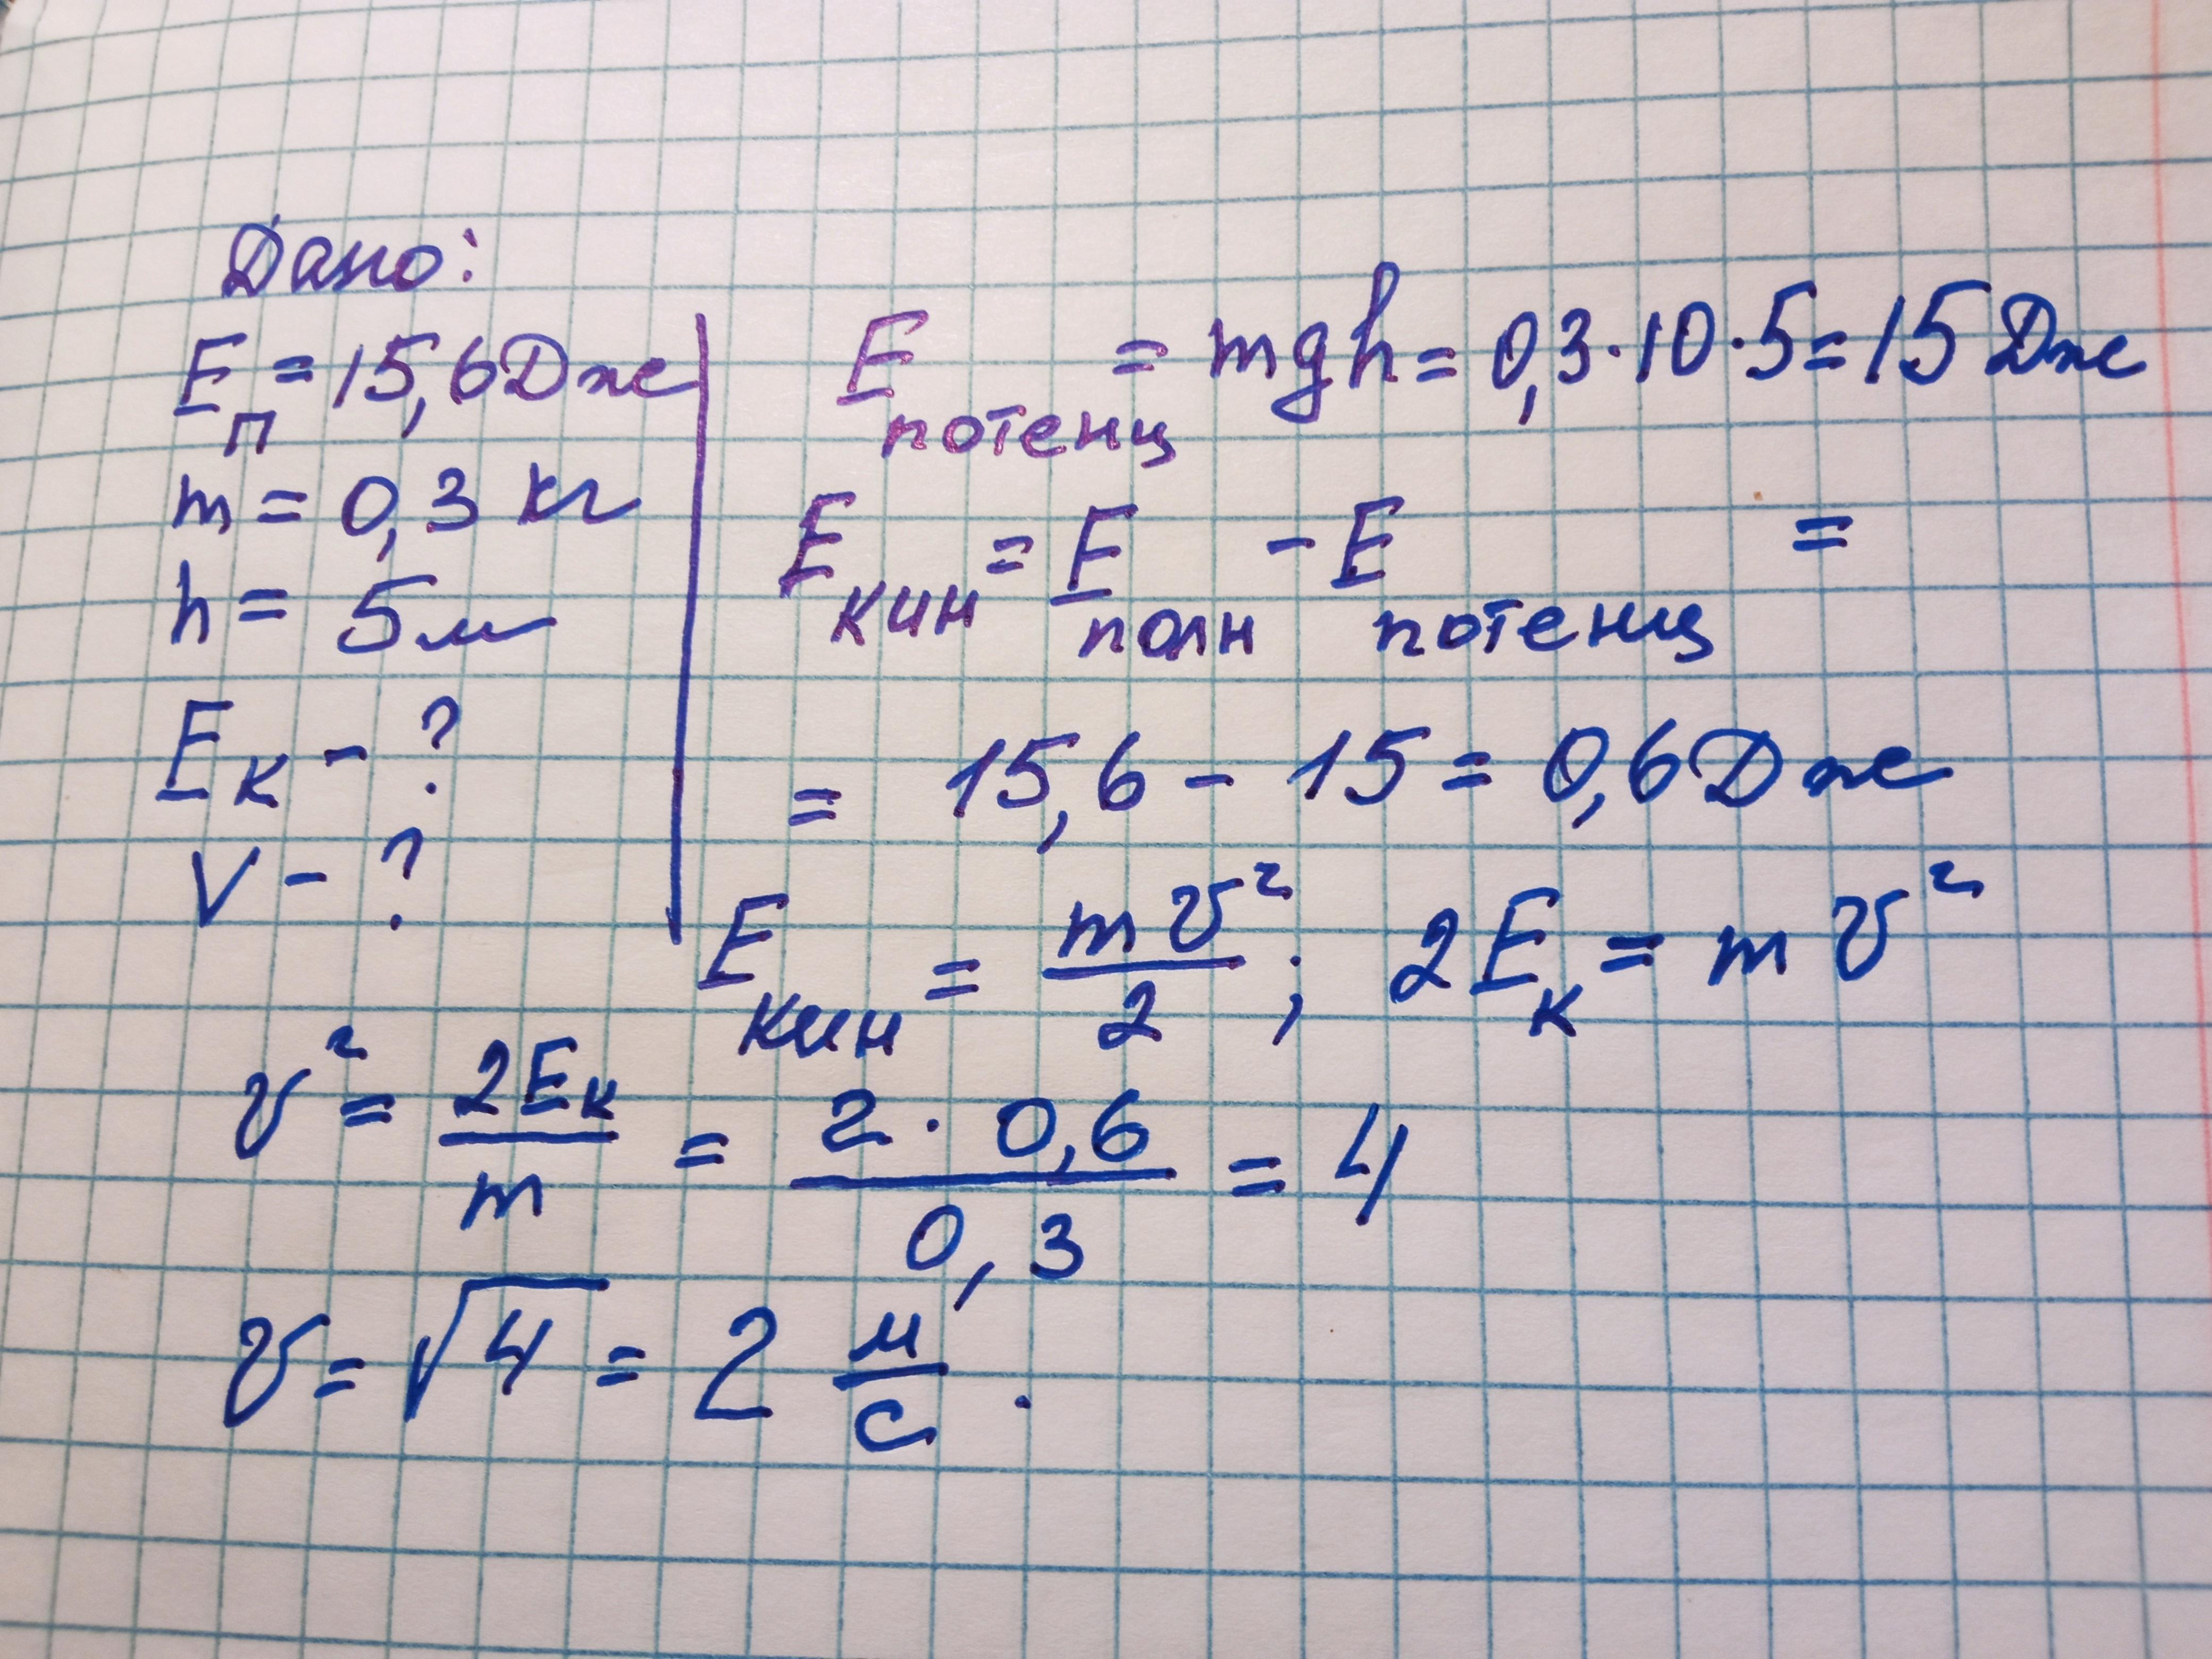 Дано:
E_п = 15,6 Дж
m = 0,3 кг
h = 5 м
E_к - ?
V - ?
E_потенц = mgh = 0,3 · 10 · 5 = 15 Дж
E_кин = E_полн - E_потенц =
= 15,6 - 15 = 0,6 Дж
E_кин = mv²/2 ; 2E_к = mv²
v² = 2E_к/m = 2 · 0,6/0,3 = 4
v = √4 = 2 м/с .